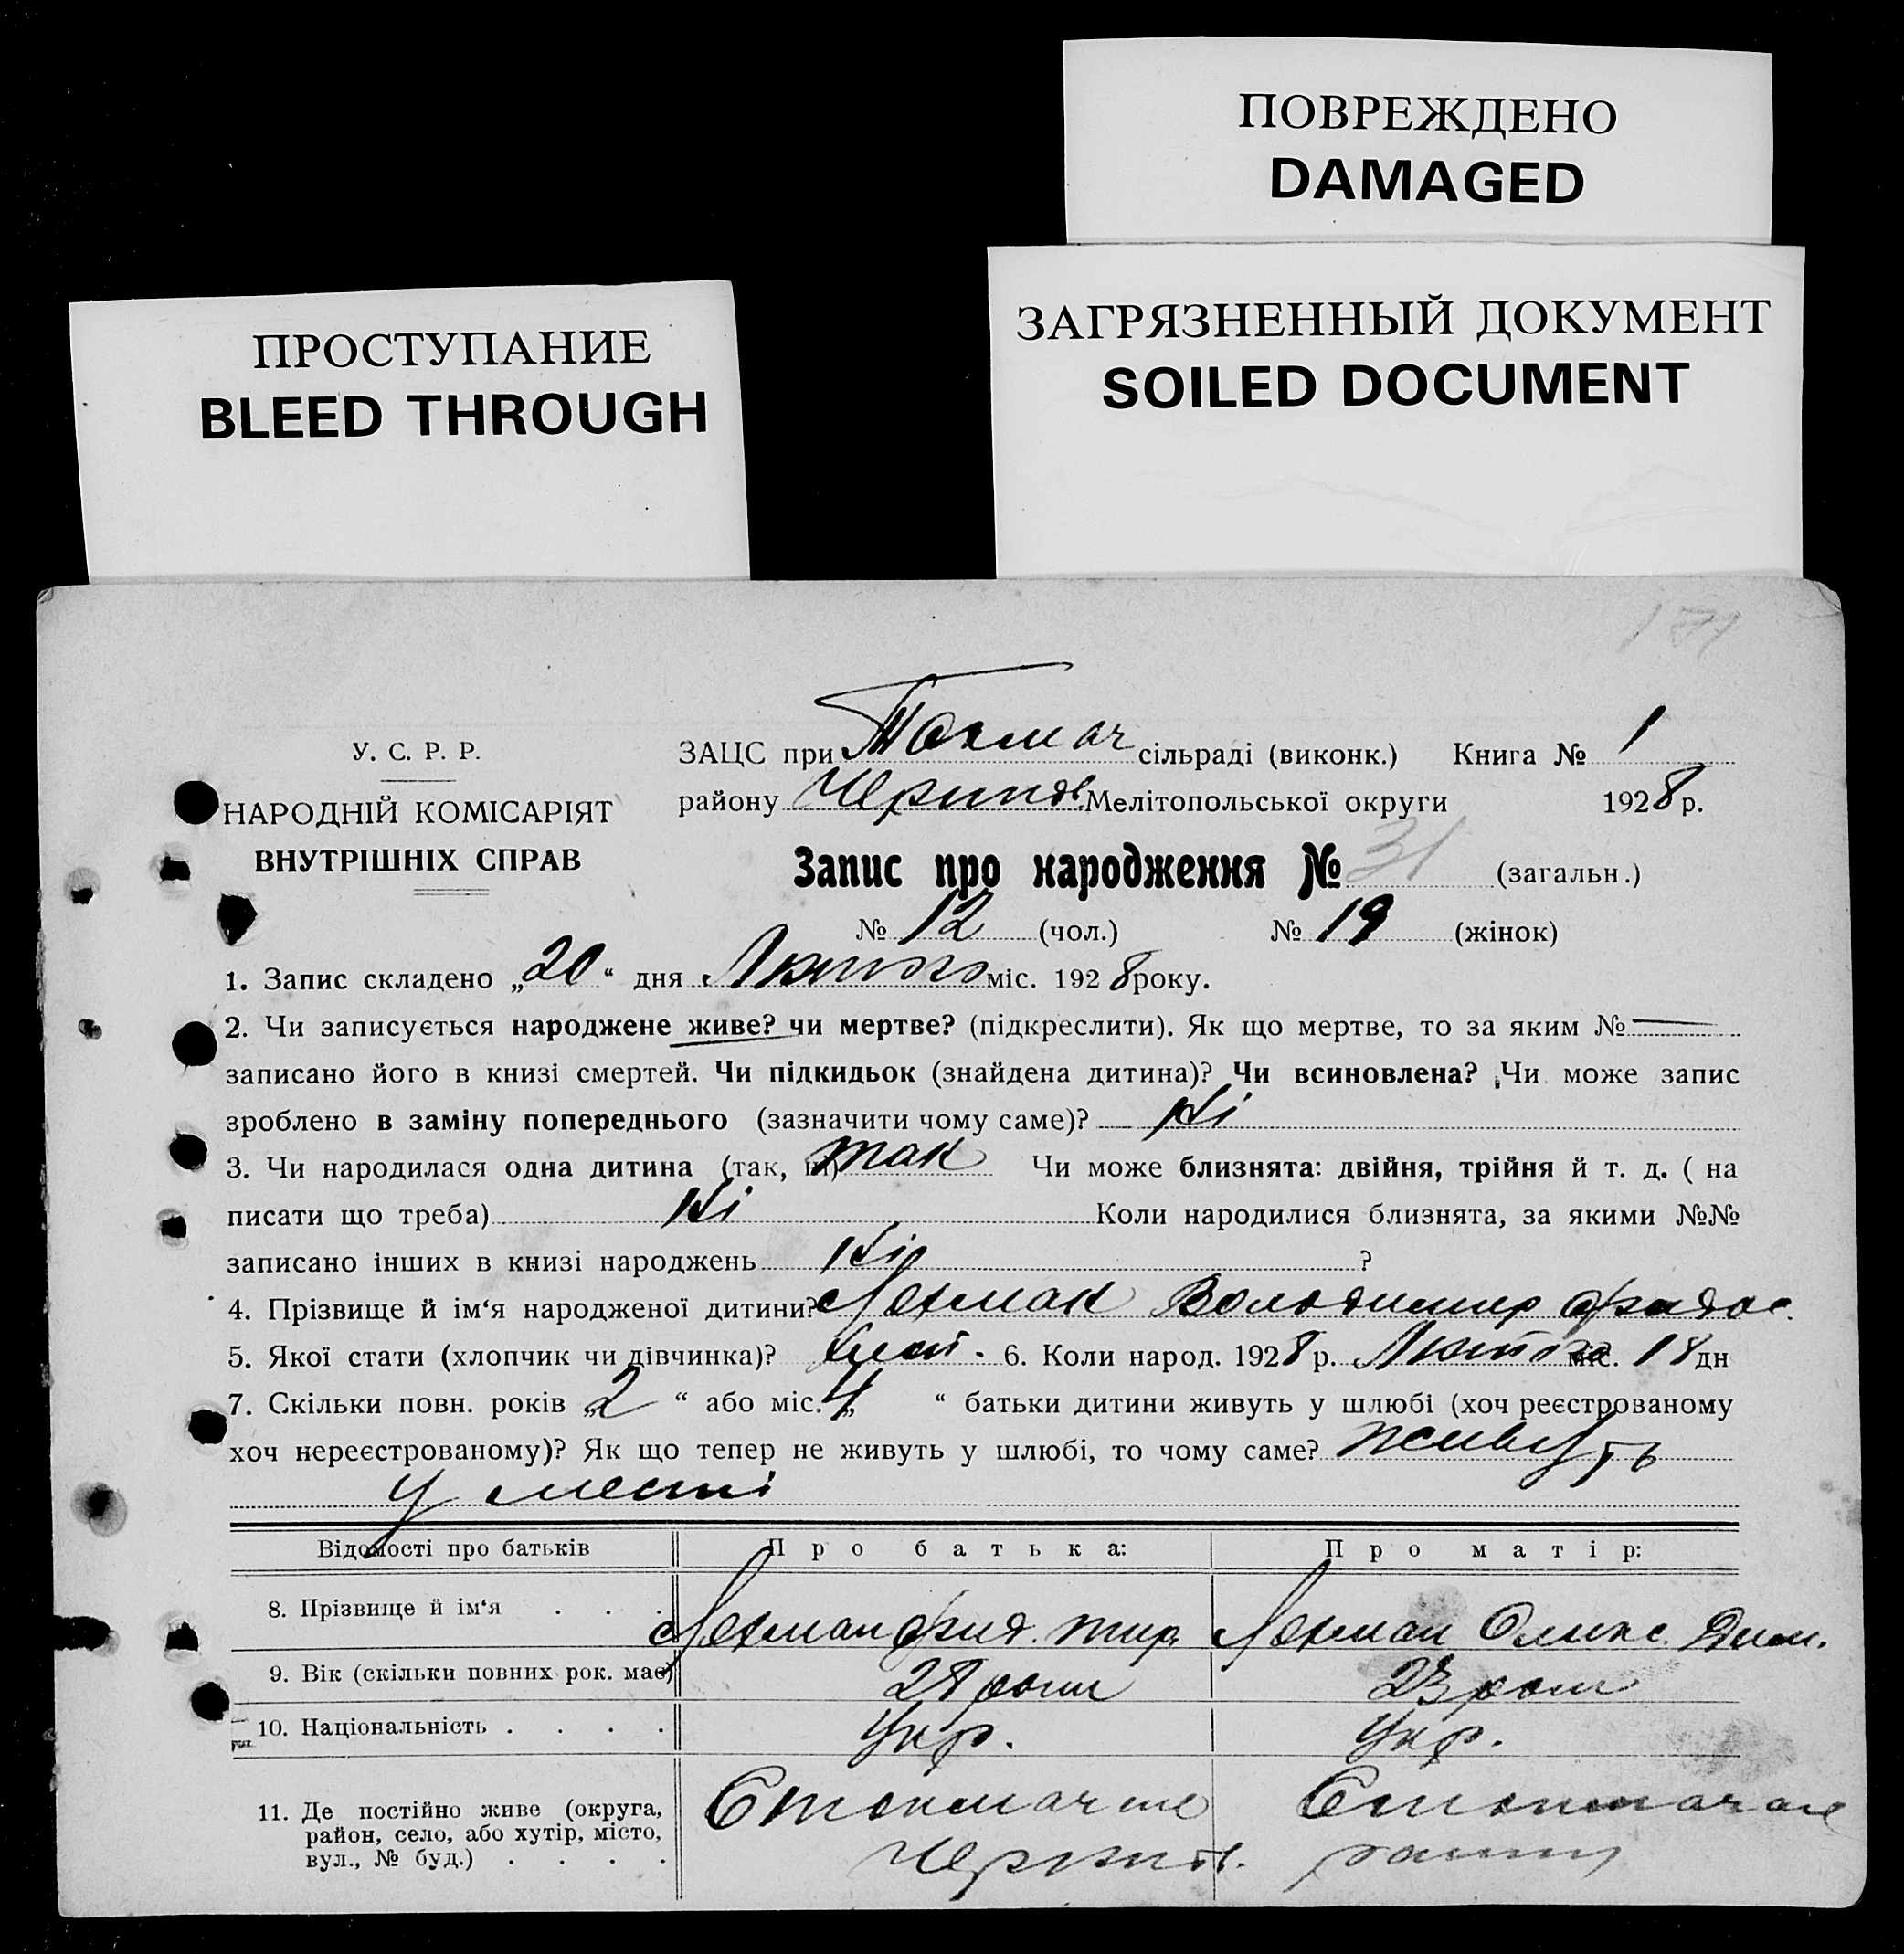 ПОВРЕЖДЕНО
DAMAGED
ПРОСТУПАНИЕ
BLEED THROUGH
ЗАГРЯЗНЕННЫЙ ДОКУМЕНТ
SOILED DOCUMENT
171
У. С. Р. Р.
НАРОДНІЙ КОМІСАРІЯТ
ВНУТРІШНІХ СПРАВ
ЗАЦС при Токмач сільраді (виконк.) Книга № 1
району Черниг. Мелітопольської округи 1928 р.
Запис про народження № 31 (загальн.)
№ 12 (чол.) № 19 (жінок)
1. Запис складено „20“ дня Лютого міс. 1928 року.
2. Чи записується народжене живе? чи мертве? (підкреслити). Як що мертве, то за яким № —
записано його в книзі смертей. Чи підкидьок (знайдена дитина)? Чи всиновлена? Чи може запис
зроблено в заміну попереднього (зазначити чому саме)? Ні
3. Чи народилася одна дитина (так, ні) так Чи може близнята: двійня, трійня й т. д. ( на
писати що треба) Ні Коли народилися близнята, за якими №№
записано інших в книзі народжень Ні ?
4. Прізвище й ім‘я народженої дитини? Лохман Володимир
5. Якої стати (хлопчик чи дівчинка)? 6. Коли народ. 1928 р. Лютого міс. 18 дн
7. Скільки повн. років „2“ або міс. „4“ батьки дитини живуть у шлюбі (хоч реєстрованому
хоч нереєстрованому)? Як що тепер не живуть у шлюбі, то чому саме? живуть
у
Відомості про батьків Про батька: Про матір:
8. Прізвище й ім‘я . . . Лохман Лохман Олекс.
9. Вік (скільки повних рок. має) 28 23
10. Національність . . . . Укр. Укр.
11. Де постійно живе (округа,
район, село, або хутір, місто,
вул., № буд.) . . . .
Черниг.